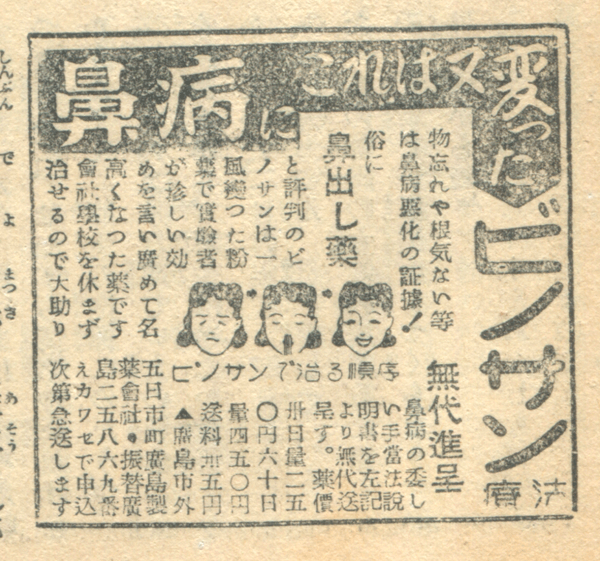 これは又変った
鼻病に
ビノサン
療法
物忘れや根気ない等
は鼻病悪化の証拠！
俗に
鼻出し薬
と評判のビ
ノサンは一
風変つた粉
薬で實驗者
が珍しい効
めを言い廣めて名
高くなつた薬です
會社學校を休まず
治せるので大助り
ビノサンで治る順序
無代進呈
鼻病の委し
い手當法説
明書を左記
より無代送
呈す。薬價
卅日量二五
〇円六十日
量四五〇円
送料卅五円
▲廣島市外
五日市町廣島製
薬會社・振替廣
島二五八六九番
えカワセで申込
次第急送します
しんぶん
で
よ
まつき
あそう